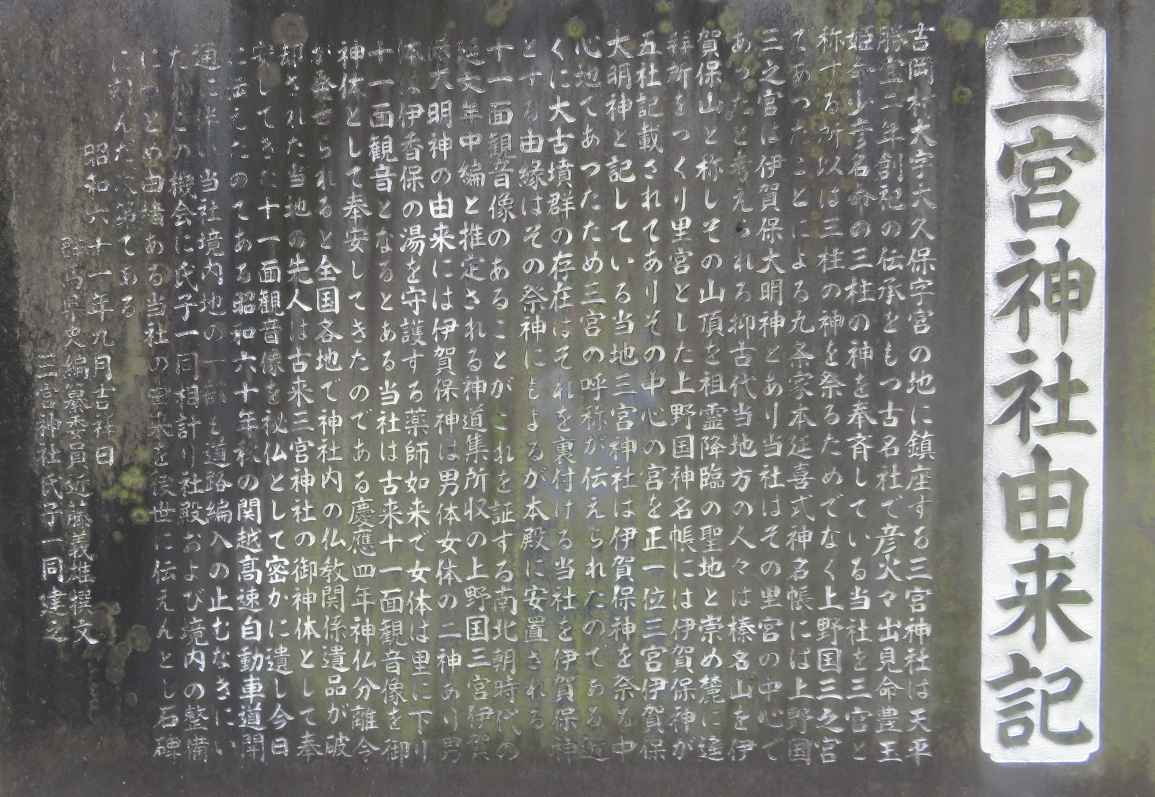 三宮神社由来記
吉岡村大字大久保字宮の地に鎮座する三宮神社は天平
勝宝二年創祀の伝承をもつ古名社で彦火々出見命豊玉
姫命少彦名命の三柱の神を奉斉している当社を三宮と
称する所以は三柱の神を祭るためでなく上野国三之宮
であつたことによる九条家本延喜式神名帳には上野国
三之宮は伊賀保大明神とあり当社はその里宮の中心で
あつたと考えられる抑古代当地方の人々は榛名山を伊
賀保山と称しその山頂を祖霊降臨の聖地と崇め麓に遥
拝所をつくり里宮とした上野国神名帳には伊賀保神が
五社記載されてありその中心の宮を正一位三宮伊賀保
大明神と記している当地三宮神社は伊賀保神を祭る中
心地であつたため三宮の呼称が伝えられたのである近
くに大古墳群の存在はそれを裏付ける当社を伊賀保神
とする由縁はその祭神にもよるが本殿に安置される
十一面観音像のあることがこれを証する南北朝時代の
延文年中編と推定される神道集所収の上野国三宮伊賀
保大明神の由来には伊賀保神は男体女体の二神あり男
体は伊香保の湯を守護する薬師如来で女体は里に下り
十一面観音となるとある当社は古来十一面観音像を御
神体として奉安してきたのである慶應四年神仏分離令
が発せられると全国各地で神社内の仏教関係遺品が破
却された当地の先人は古来三宮神社の御神体として奉
安してきた十一面観音像を秘仏として密かに遺し今日
に伝えたのである昭和六十年秋の関越高速自動車道開
通に伴い当社境内地の一部も道路編入の止むなきにい
たこの機会に氏子一同相計り社殿および境内の整備
につとめ由緒ある当社の由来を後世に伝えんとし石碑
に刻んだ次第である
昭和六十一年九月吉祥日
群馬県史編纂委員近藤義雄撰文
三宮神社氏子一同建之